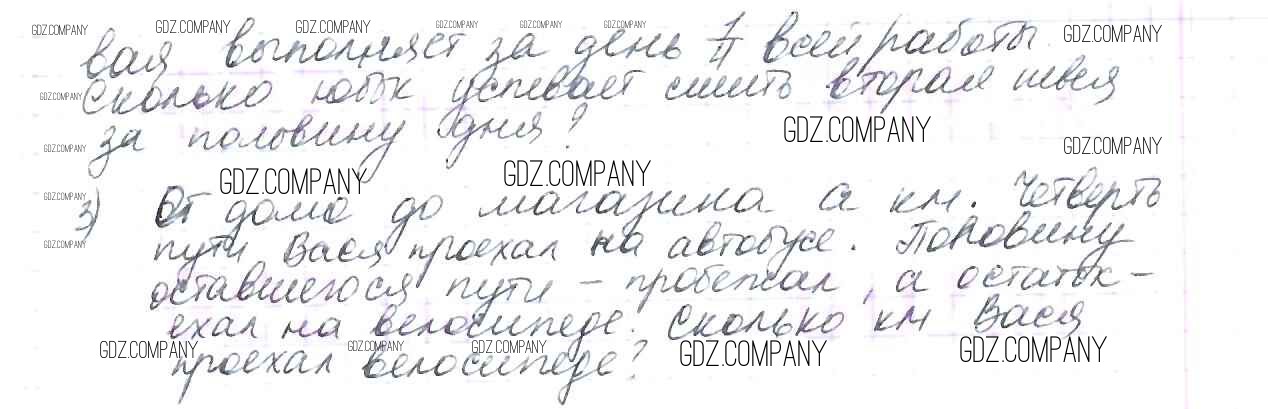 GDZ.COMPANY GDZ.COMPANY GDZ.COMPANY GDZ.COMPANY GDZ.COMPANY GDZ.COMPANY GDZ.COMPANY
вая выполняет за день 1/11 всей работы
GDZ.COMPANY
Сколько юбок успевает сшить вторая швея
за половину дня?
GDZ.COMPANY
GDZ.COMPANY GDZ.COMPANY
GDZ.COMPANY GDZ.COMPANY
GDZ.COMPANY
3) От дома до магазина а км. Четверть
GDZ.COMPANY
пути Вася проехал на автобусе. Половину
оставшегося пути - пробежал, а остаток -
ехал на велосипеде. Сколько км Вася
GDZ.COMPANY GDZ.COMPANY GDZ.COMPANY GDZ.COMPANY GDZ.COMPANY
проехал велосипеде?